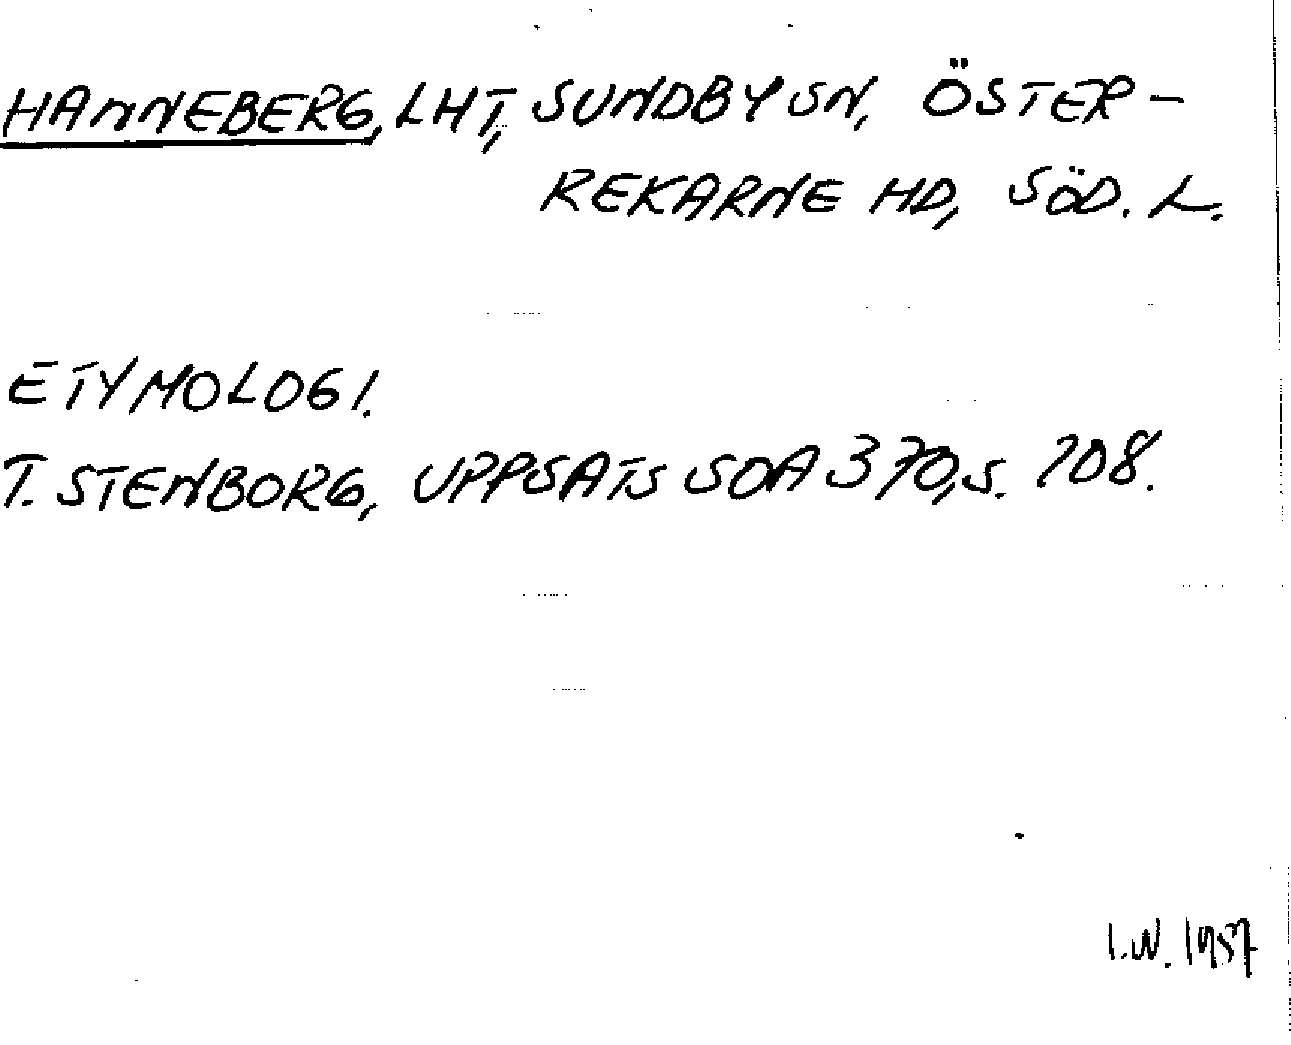 HANNEBERG, LHT, SUNDBY SN, ÖSTER-
REKARNE HD, SÖD. L.
ETYMOLOGI.
T. STENBORG, UPPSATS SOA 370, S. 208.
I.W. 1957